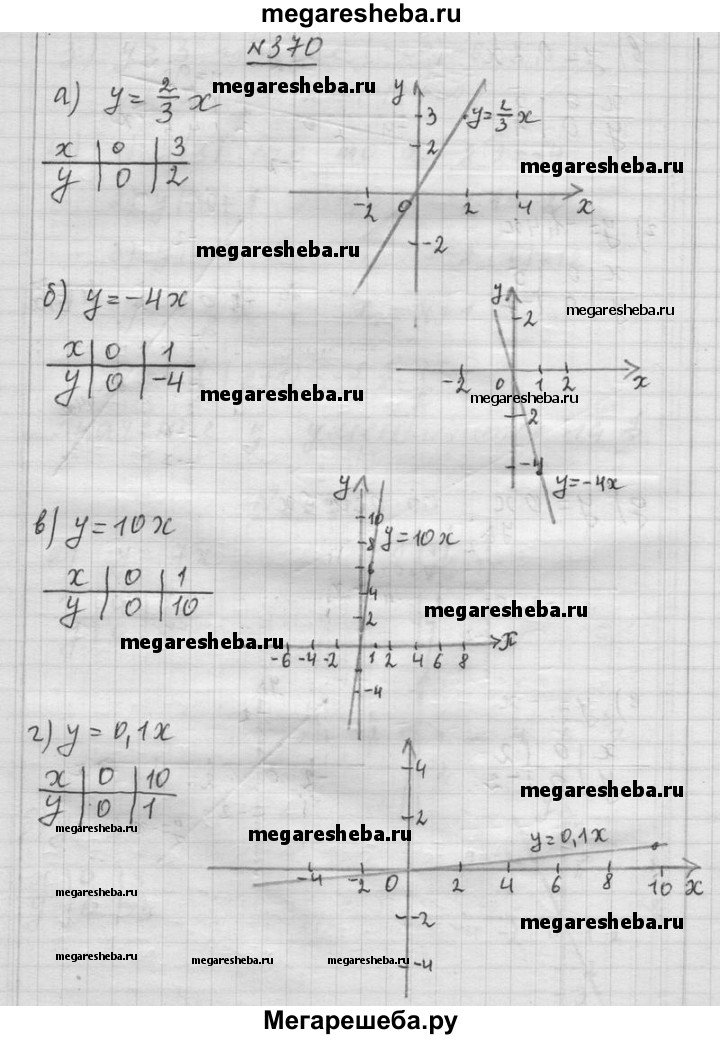 megaresheba.ru
№370
а) y = 2/3 x
megaresheba.ru
x | 0 | 3
y | 0 | 2
y
3
2
y = 2/3 x
-2 0 2 4 x
-2
megaresheba.ru
megaresheba.ru
б) y = -4x
x | 0 | 1
y | 0 | -4
megaresheba.ru
y
2
megaresheba.ru
-2 0 1 2 x
megaresheba.ru
2
-4
y = -4x
в) y = 10x
x | 0 | 1
y | 0 | 10
megaresheba.ru
y
10
8
6
4
2
y = 10x
megaresheba.ru
-6 -4 -2 1 2 4 6 8 x
-4
г) y = 0,1x
x | 0 | 10
y | 0 | 1
megaresheba.ru
4
2
megaresheba.ru
megaresheba.ru
y = 0,1x
-4 -2 0 2 4 6 8 10 x
megaresheba.ru
-2
megaresheba.ru
megaresheba.ru
megaresheba.ru
megaresheba.ru
-4
Мегарешеба.ру